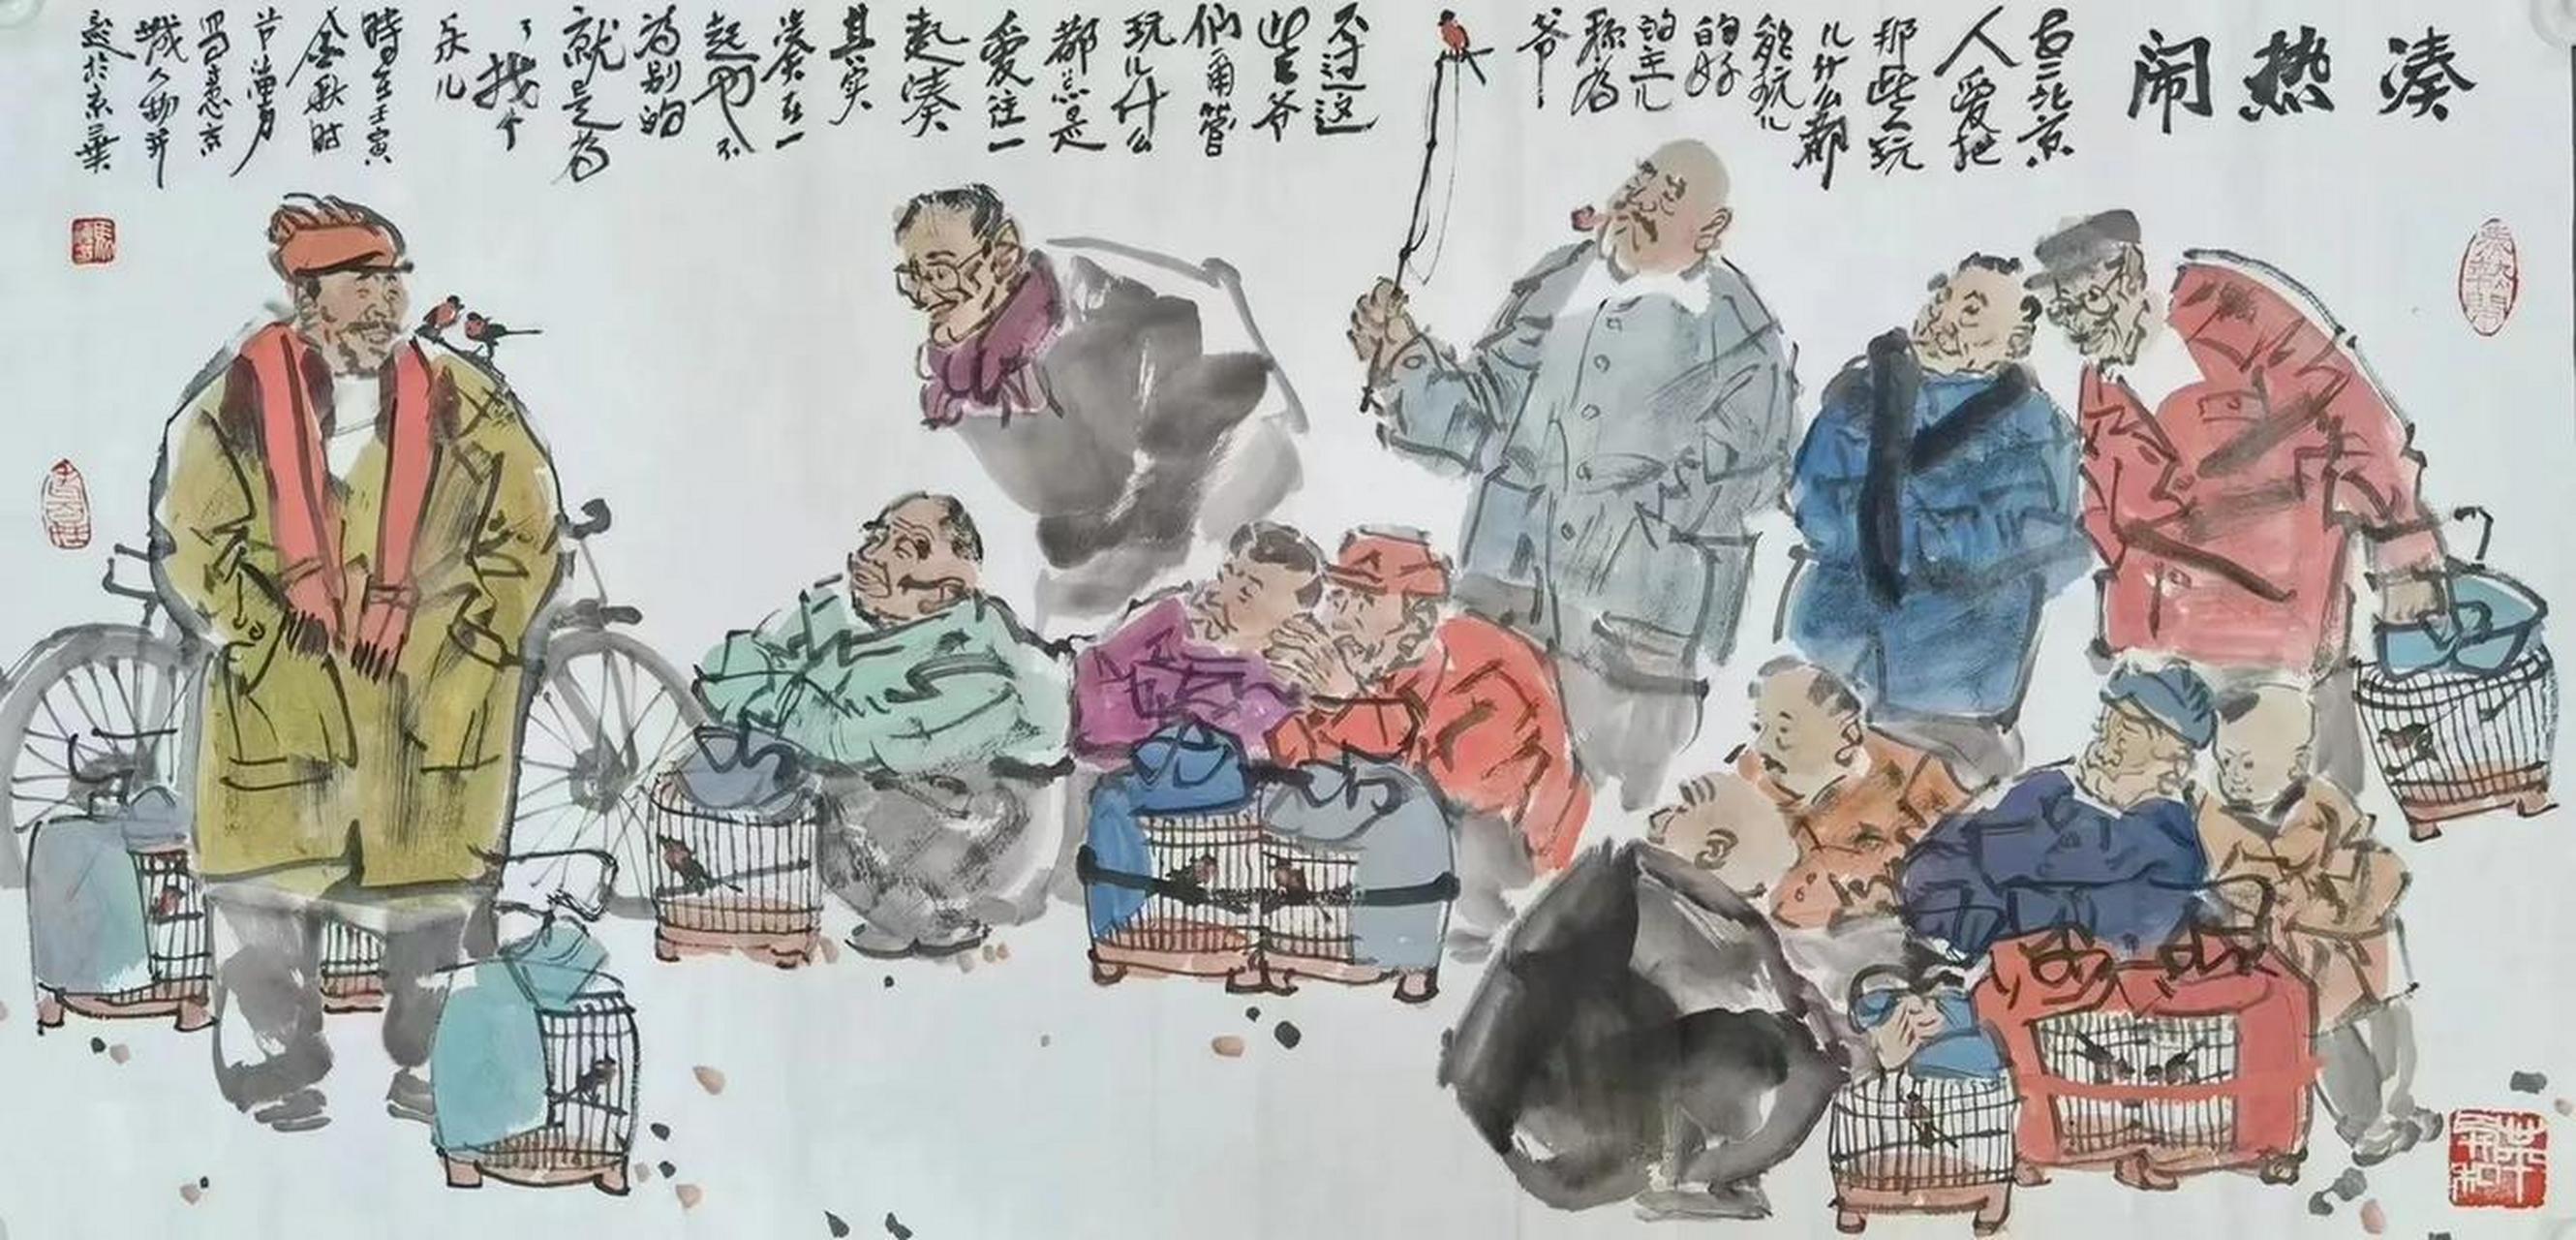 凑热闹
老北京
人爱把
那些玩
儿什么都
能玩儿
的好
的主儿
称为
爷
不过这
些爷
们甭管
玩儿什
么
都总是
爱往一
起凑
其实
凑在一
起也不
为别的
就是为
了找个
乐儿
時在壬寅
金秋时
节
写意京
城人物并
题於京華